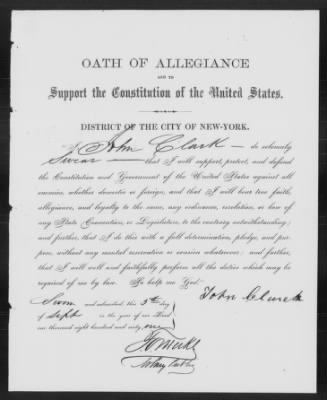 OATH OF ALLEGIANCE
AND TO
Support the Constitution of the United States.
DISTRICT OF THE CITY OF NEW-YORK.
I John Clark do solemnly
Swear that I will support, protect, and defend
the Constitution and Government of the United States against all
enemies, whether domestic or foreign, and that I will bear true faith,
allegiance, and loyalty to the same, any ordinance, resolution, or law of
any State Convention, or Legislature, to the contrary notwithstanding;
and further, that I do this with a full determination, pledge, and pur-
pose, without any mental reservation or evasion whatsoever; and further,
that I will well and faithfully perform all the duties which may be
required of me by law. So help me God.
John Clark
Sworn and subscribed, this 5th day
of Sept in the year of our Lord
one thousand eight hundred and sixty one
Notary Public